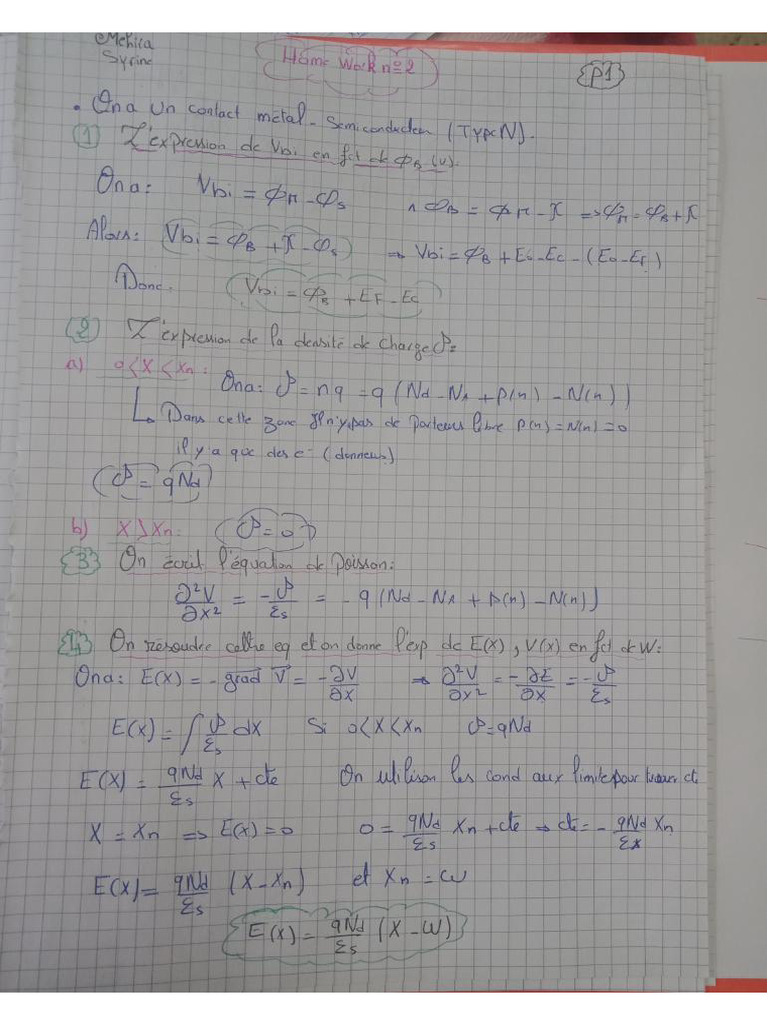 Mehira
Syrine
Home Work n=2
P1
• On a un contact métal - semiconducteu (Type N).
(1) L'expression de Vbi en fct de ΦB (v).
On a: Vbi = ΦM - Φs ∧ ΦB = ΦM - X ⇒ ΦM = ΦB + X
Alors: Vbi = ΦB + X - Φs → Vbi = ΦB + E0 - Ec - (E0 - EF)
Donc: Vbi = ΦB + EF - Ec
(2) L'expression de la densité de charge ρ=
a) 0<X<Xn: On a: ρ = nq = q (Nd - NA + P(n) - N(n))
Dans cette zone Il n'y, pas de porteurs libre P(n) = N(n) = 0
il y a que des e- (donneurs)
ρ = qNd
b) X>Xn: ρ = 0
(3) On écrit l'équation de Poisson:
∂²V/∂x² = -ρ/εs = -q (Nd - NA + p(n) - N(n))
4 On résoudre cette eq et on donne l'exp de E(x), V(x) en fct de W:
On a: E(x) = -grad V = -∂V/∂x → ∂²V/∂x² = -∂E/∂x = -ρ/εs
E(x) = ∫ ρ/εs dx Si 0<X<Xn ρ = qNd
E(x) = qNd/εs X + cte On utilison les cond aux limite pour trouver cte
X = Xn ⇒ E(x) = 0 0 = qNd/εs Xn + cte → cte = - qNd/εx Xn
E(x) = qNd/εs (X - Xn) et Xn = W
E(x) = qNd/εs (X - W)